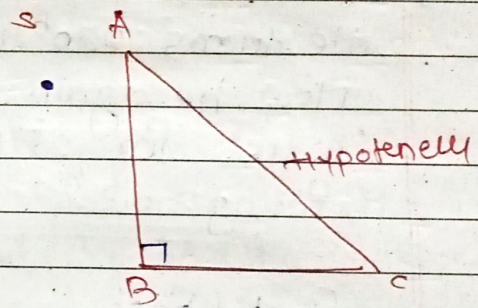 S
A
Hypotenell
B
C